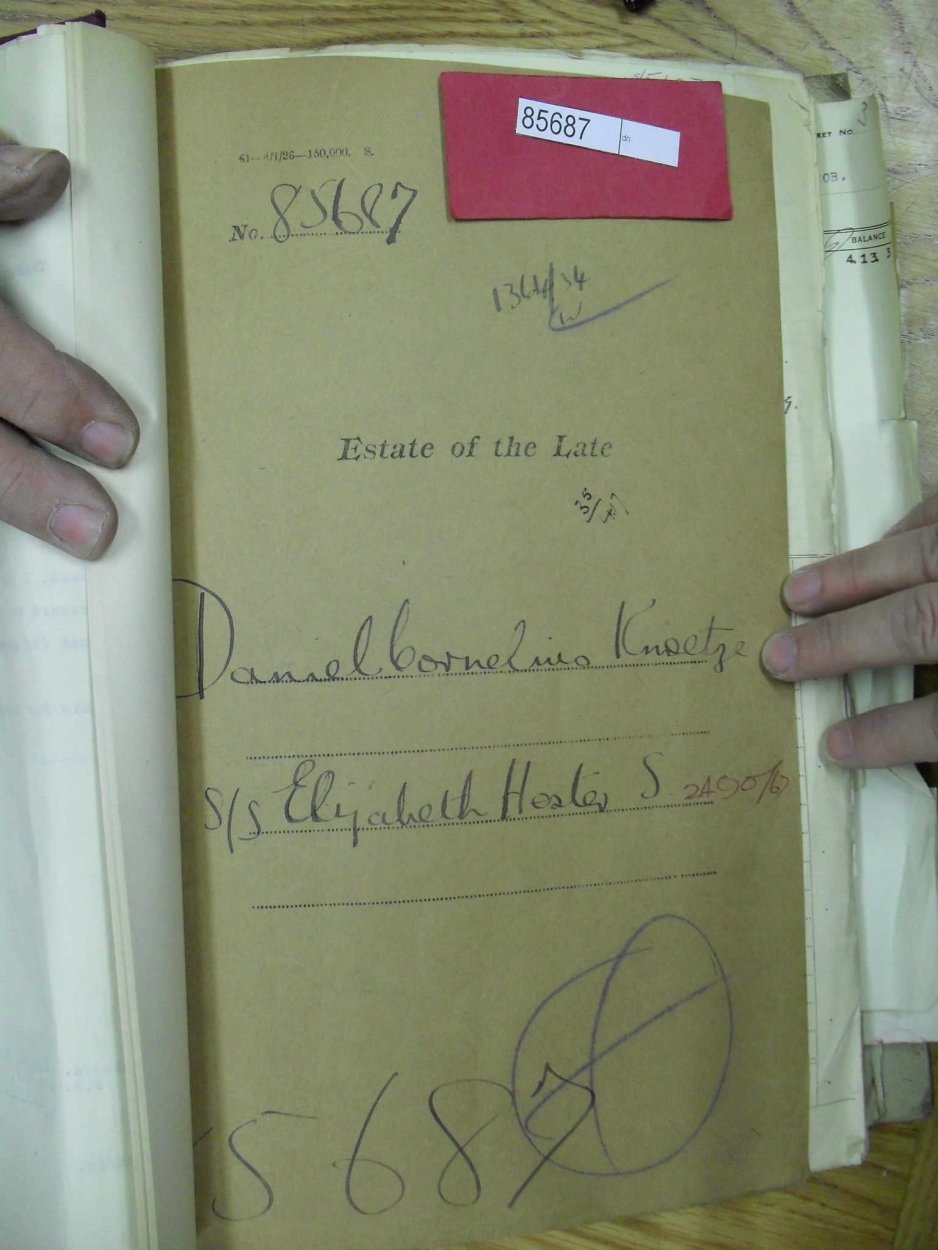 85687
61—4/1/26—150,000. S.
No. 85687
1364/34
Estate of the Late
35/47
Daniel Cornelius Knoetze
S/S Elizabeth Hester S
5687
EET NO.
OB.
BALANCE
4.13. 3